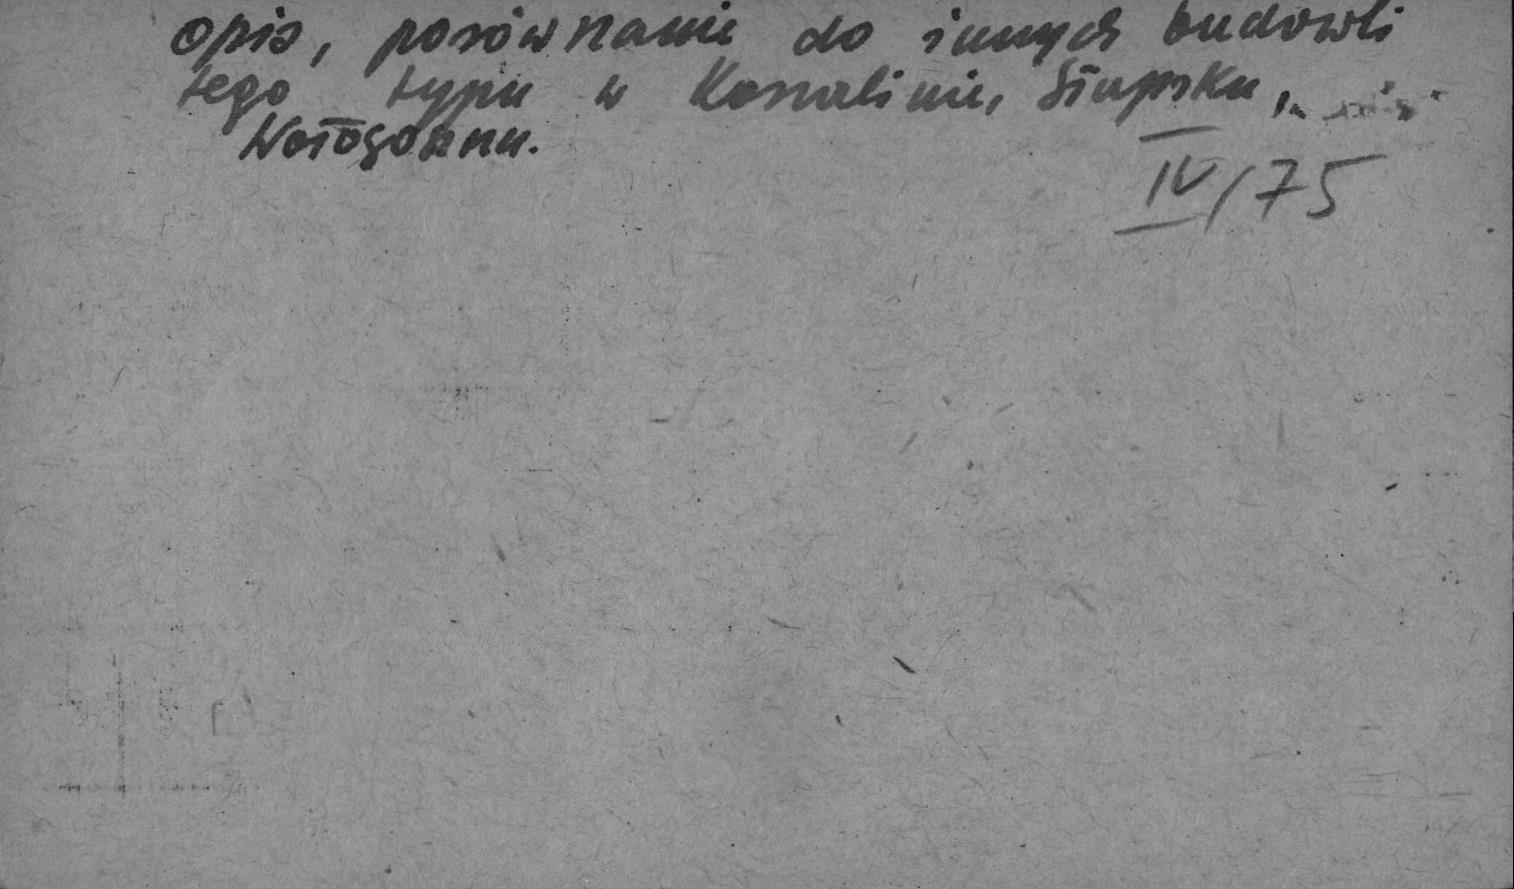 opis, porównanie do innych budowli
tego typu w Koszalinie, Słupsku,
Wołogoszczu.
IV/75